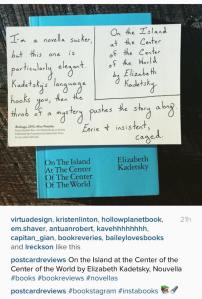 I'm a novella sucker,
but this one is
particularly elegant.
Kadetsky's language
hooks you, then the
throb of a mystery pushes the story along.
Eerie & insistent,
caged.
On the Island
at the Center
of the Center
of the World
by Elizabeth
Kadetsky
On The Island
At The Center
Of The Center
Of The World
Elizabeth
Kadetsky
virtuadesign, kristenlinton, hollowplanetbook,
em.shaver, antuanrobert, kavehhhhhhhh,
capitan_gian, bookreveries, baileylovesbooks
and lreckson like this
21h
postcardreviews On the Island at the Center of the
Center of the World by Elizabeth Kadetsky, Nouvella
#books #bookreviews #novellas
postcardreviews #bookstagram #instabooks